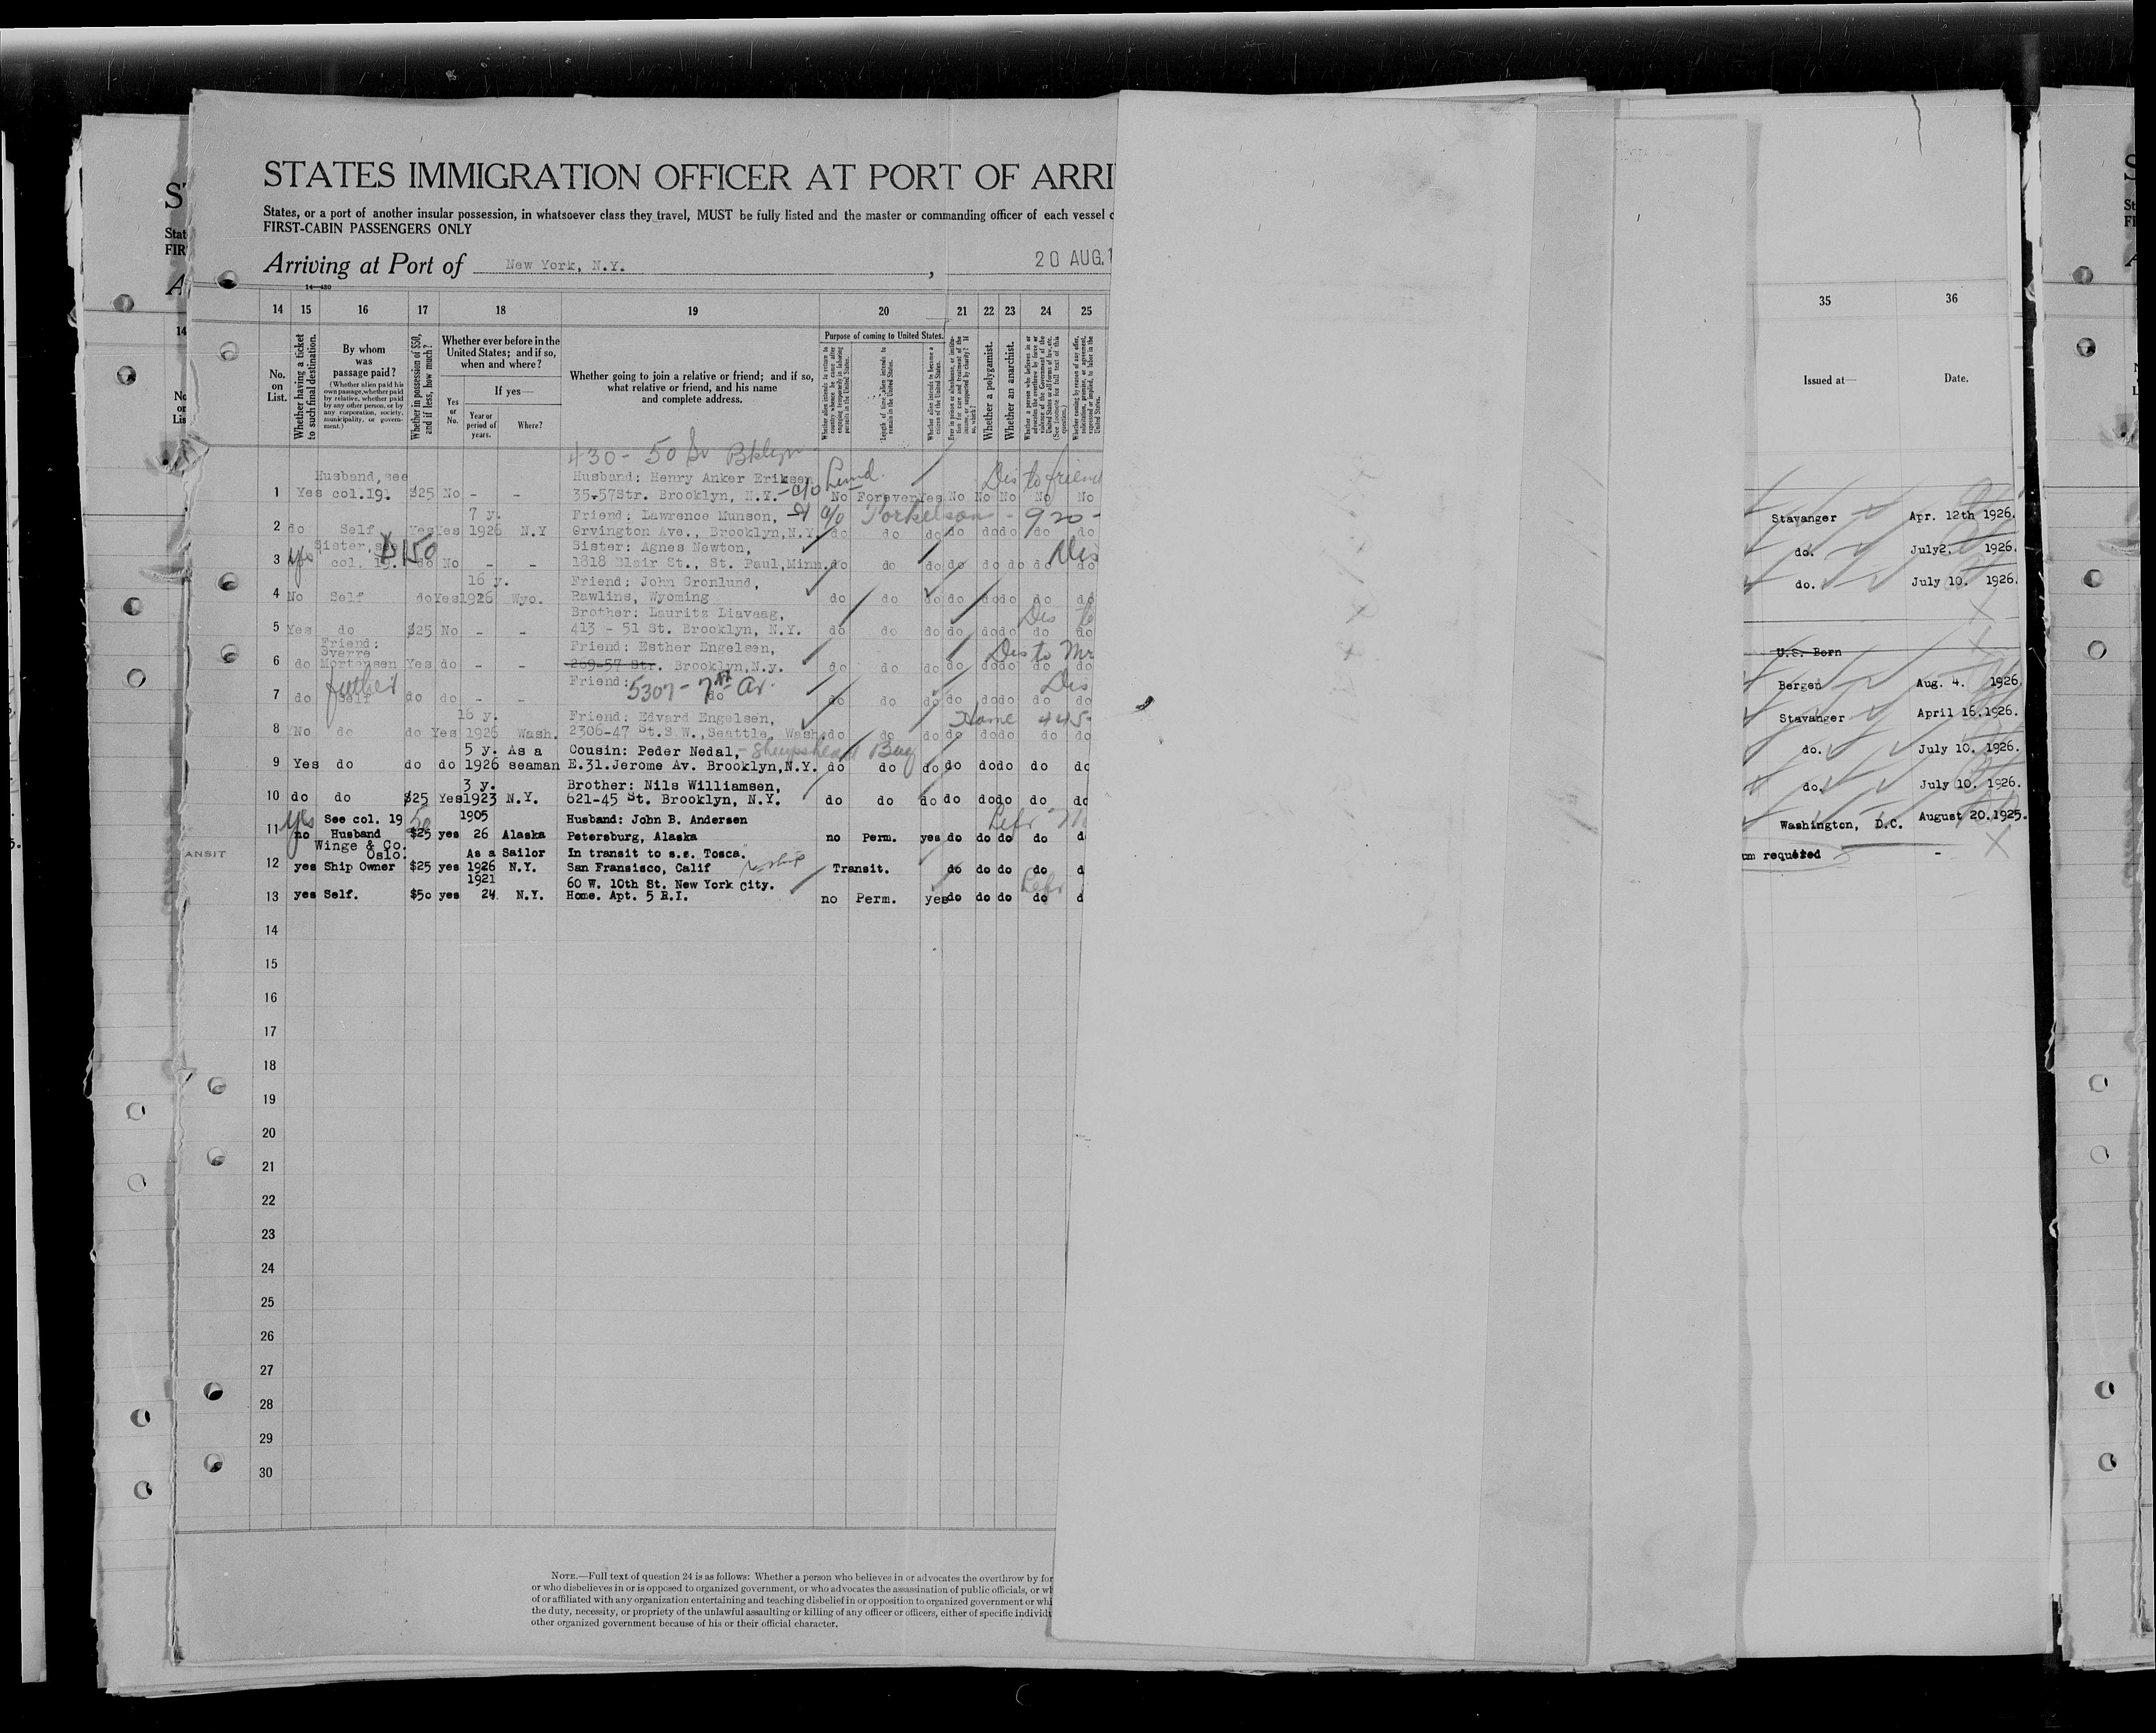 STATES IMMIGRATION OFFICER AT PORT OF ARRI
States, or a port of another insular possession, in whatsoever class they travel, MUST be fully listed and the master or commanding officer of each vessel c
FIRST-CABIN PASSENGERS ONLY
Arriving at Port of New York, N.Y. , 20 AUG. 1
14—430
14 15 16 17 18 19 20 21 22 23 24 25 35 36
No. on List.
Whether having a ticket to such final destination.
By whom was passage paid?
(Whether alien paid his own passage, whether paid by relative, whether paid by any other person, or by any corporation, society, municipality, or government.)
Whether in possession of $50, and if less, how much?
Whether ever before in the United States; and if so, when and where?
Yes or No.
If yes—
Year or period of years.
Where?
Whether going to join a relative or friend; and if so, what relative or friend, and his name and complete address.
Purpose of coming to United States.
Whether alien intends to return to country whence he came after engaging temporarily in laboring pursuits in the United States.
Length of time alien intends to remain in the United States.
Whether alien intends to become a citizen of the United States.
Whether a polygamist.
Whether an anarchist.
Issued at—
Date.
430 - 50 St Bklyn
Husband, see Husband: Henry Anker Eriksen c/o Lund. Dis to friend
1 Yes col. 19. $25 No - - 35-57Str. Brooklyn, N.Y. No Forever Yes No No No No No
7 y. Friend: Lawrence Munson, c/o Torkelson - 920 -
2 do Self Yes Yes 1926 N.Y Orvington Ave., Brooklyn, N.Y. do do do do do do do do Stavanger Apr. 12th 1926.
yes Sister, see $150 Sister: Agnes Newton, Dis
3 col. 19. do No - - 1818 Blair St., St. Paul, Minn. do do do do do do do do do. July 2. 1926.
16 y. Friend: John Gronlund,
4 No Self do Yes 1926 Wyo. Rawlins, Wyoming do do do do do do do do do. July 10. 1926.
Brother: Lauritz Liavaag, Dis to
5 Yes do $25 No - - 413 - 51 St. Brooklyn, N.Y. do do do do do do do do
Friend: Sverre Friend: Esther Engelsen, Dis to Mr
6 do Mortensen Yes do - - 269-57 Str. Brooklyn, N.y. do do do do do do do do U.S. Born
father Friend: 5307 - 7th Av. Dis
7 do Self do do - - do do do do do do do do do Bergen Aug. 4. 1926.
16 y. Friend: Edvard Engelsen, Home 445-
8 No do do Yes 1926 Wash. 2306-47 St.S.W., Seattle, Wash. do do do do do do do do Stavanger April 16.1926.
5 y. As a Cousin: Peder Nedal, - Sheepshead Bay
9 Yes do do do 1926 seaman E.31.Jerome Av. Brooklyn, N.Y. do do do do do do do do do. July 10. 1926.
3 y. Brother: Nils Williamsen,
10 do do $25 Yes 1923 N.Y. 621-45 St. Brooklyn, N.Y. do do do do do do do do do. July 10. 1926.
yes See col. 19 50 1905 Husband: John B. Andersen
11 no Husband $25 yes 26 Alaska Petersburg, Alaska no Perm. yes do do do do d Washington, D.C. August 20.1925.
ANSIT Winge & Co. Oslo. As a Sailor In transit to s.s. Tosca.
12 yes Ship Owner $25 yes 1926 N.Y. San Fransisco, Calif Transit. do do do do d um required -
1921 60 W. 10th St. New York City.
13 yes Self. $50 yes 24 N.Y. Home. Apt. 5 R.I. no Perm. yes do do do do d
14
15
16
17
18
19
20
21
22
23
24
25
26
27
28
29
30
NOTE.—Full text of question 24 is as follows: Whether a person who believes in or advocates the overthrow by for
or who disbelieves in or is opposed to organized government, or who advocates the assassination of public officials, or wh
of or affiliated with any organization entertaining and teaching disbelief in or opposition to organized government or whi
the duty, necessity, or propriety of the unlawful assaulting or killing of any officer or officers, either of specific individu
other organized government because of his or their official character.